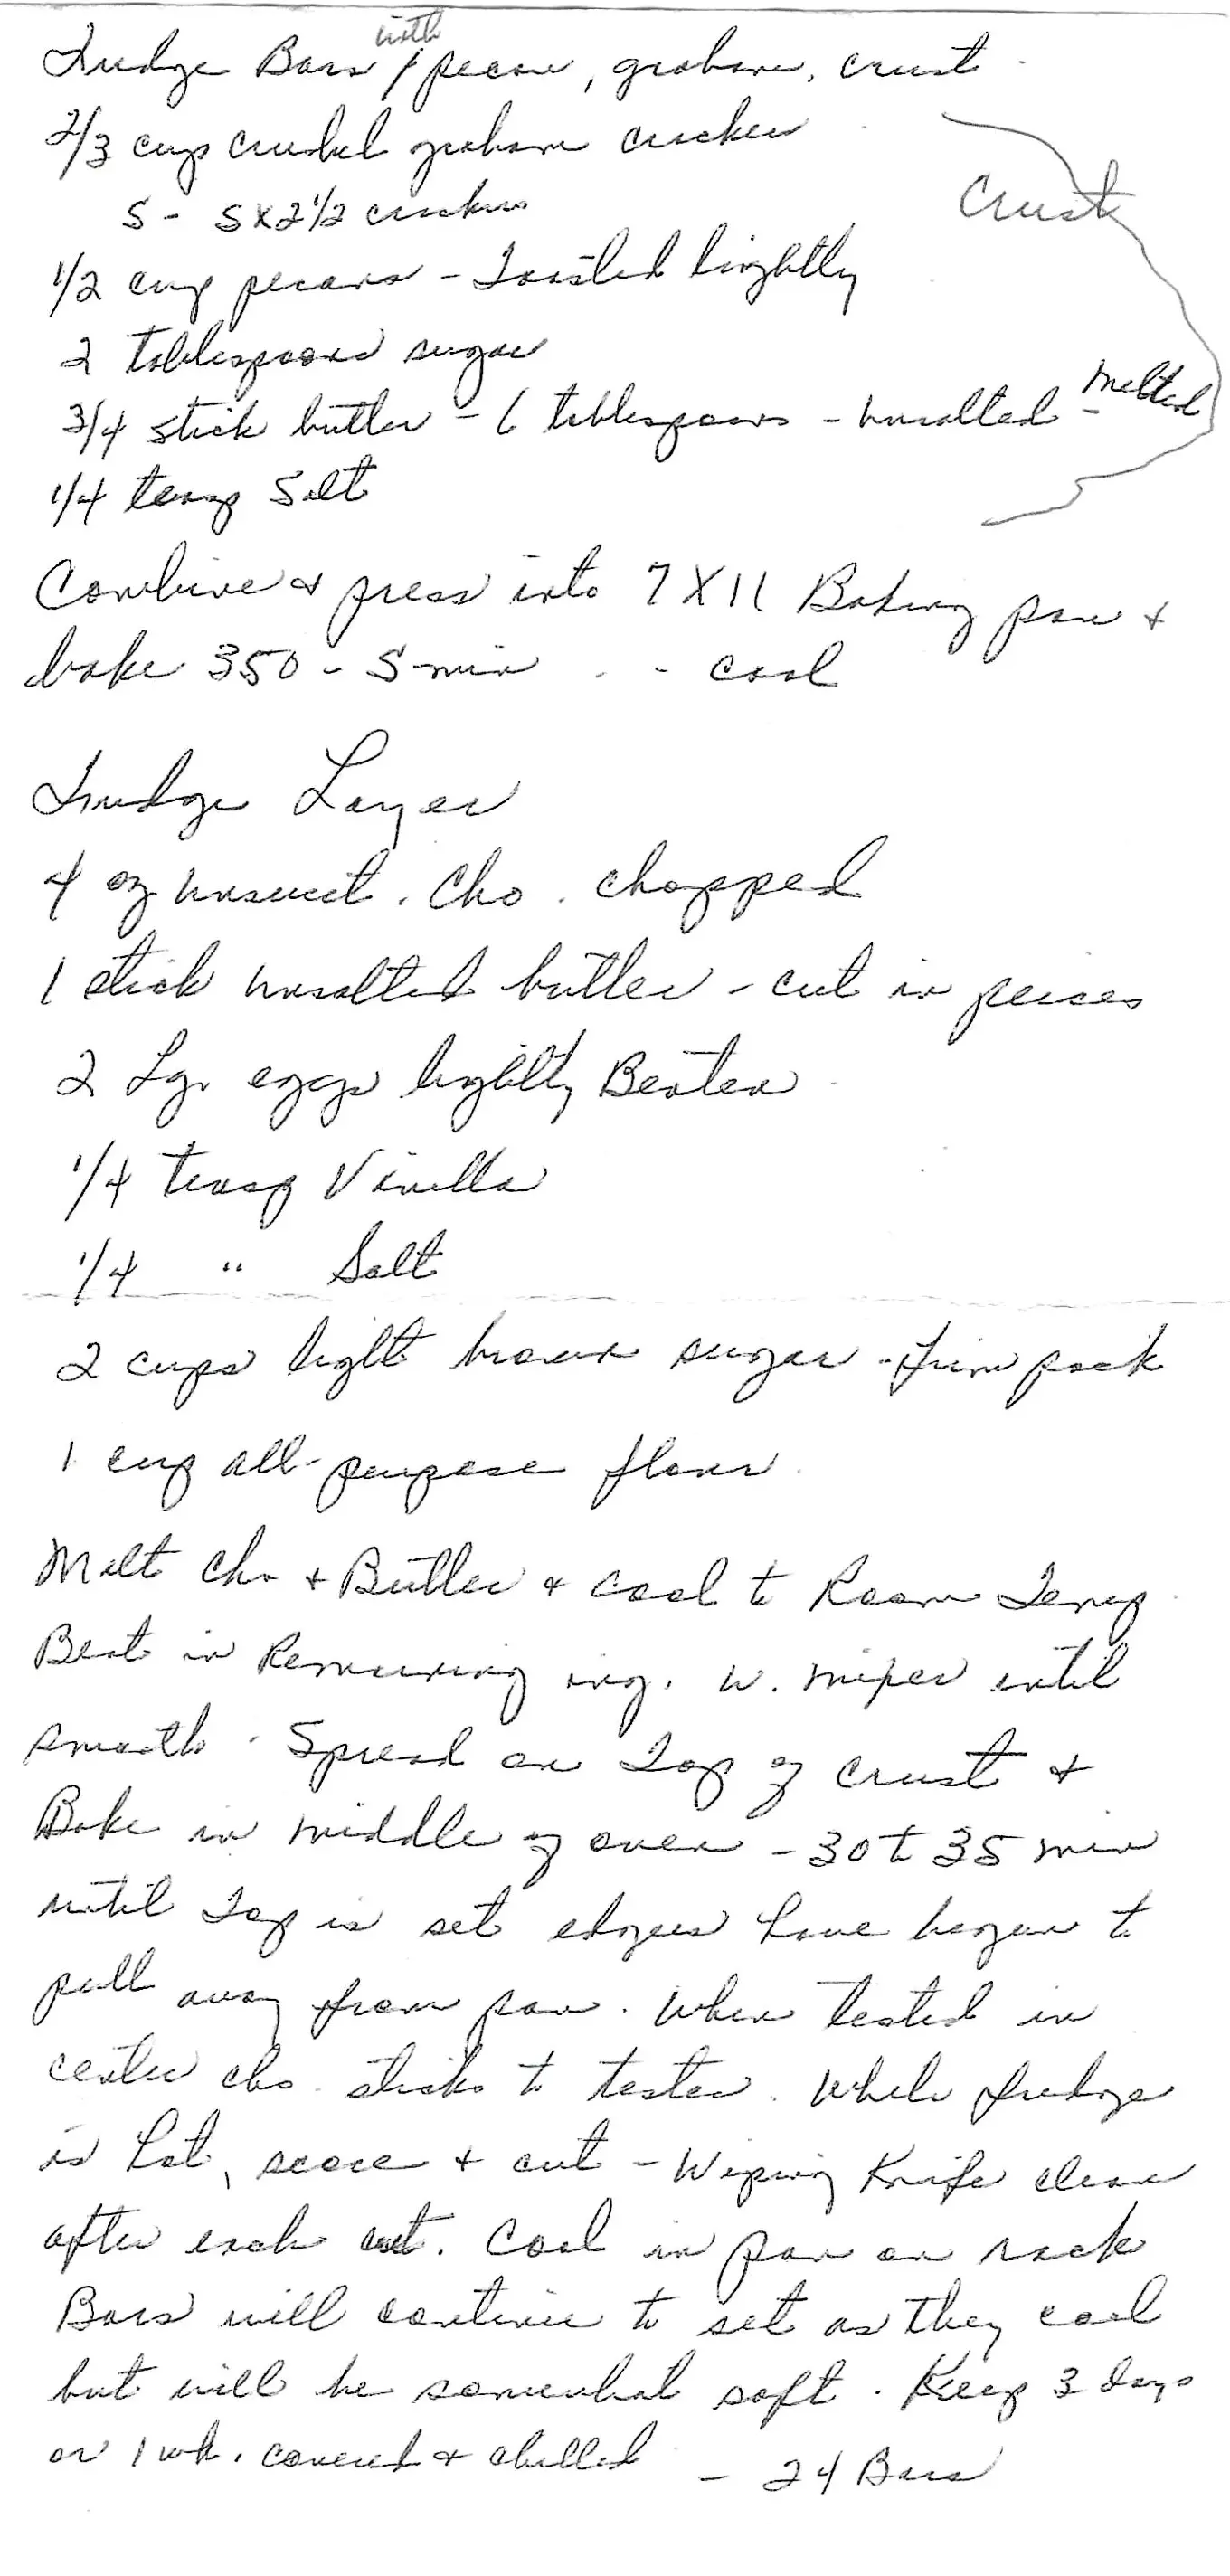 Fudge Bars with pecan, graham, crust
2/3 cup crushed graham cracker
Crust
5 - 5X2 1/2 crackers
1/2 cup pecans - Toasted lightly
2 tablespoons sugar
3/4 stick butter - 6 tablespoons - unsalted - Melted
1/4 teasp Salt
Combine + press into 7 X 11 Baking pan +
bake 350 - 5 min - cool
Fudge Layer
4 oz unsweet. Cho. chopped
1 stick unsalted butter - cut in peices
2 Lgr eggs lightly Beaten
1/4 teasp Vinella
1/4 " Salt
2 cups light brown sugar - firm pack
1 cup all-purpose flour
Melt Cho + Butter + cool to Room Temp
Beat in Remaining ing. w. mixer until
smooth. Spread on Top of crust +
Bake in middle of oven - 30 to 35 min
until Top is set edges have began to
pull away from pan. When tested in
center cho. sticks to tester. While fudge
is hot, score + cut - Wiping Knife clean
after each cut. Cool in pan on rack
Bars will continue to set as They cool
but will be somewhat soft. Keep 3 days
or 1 wk. covered + chilled - 24 Bars